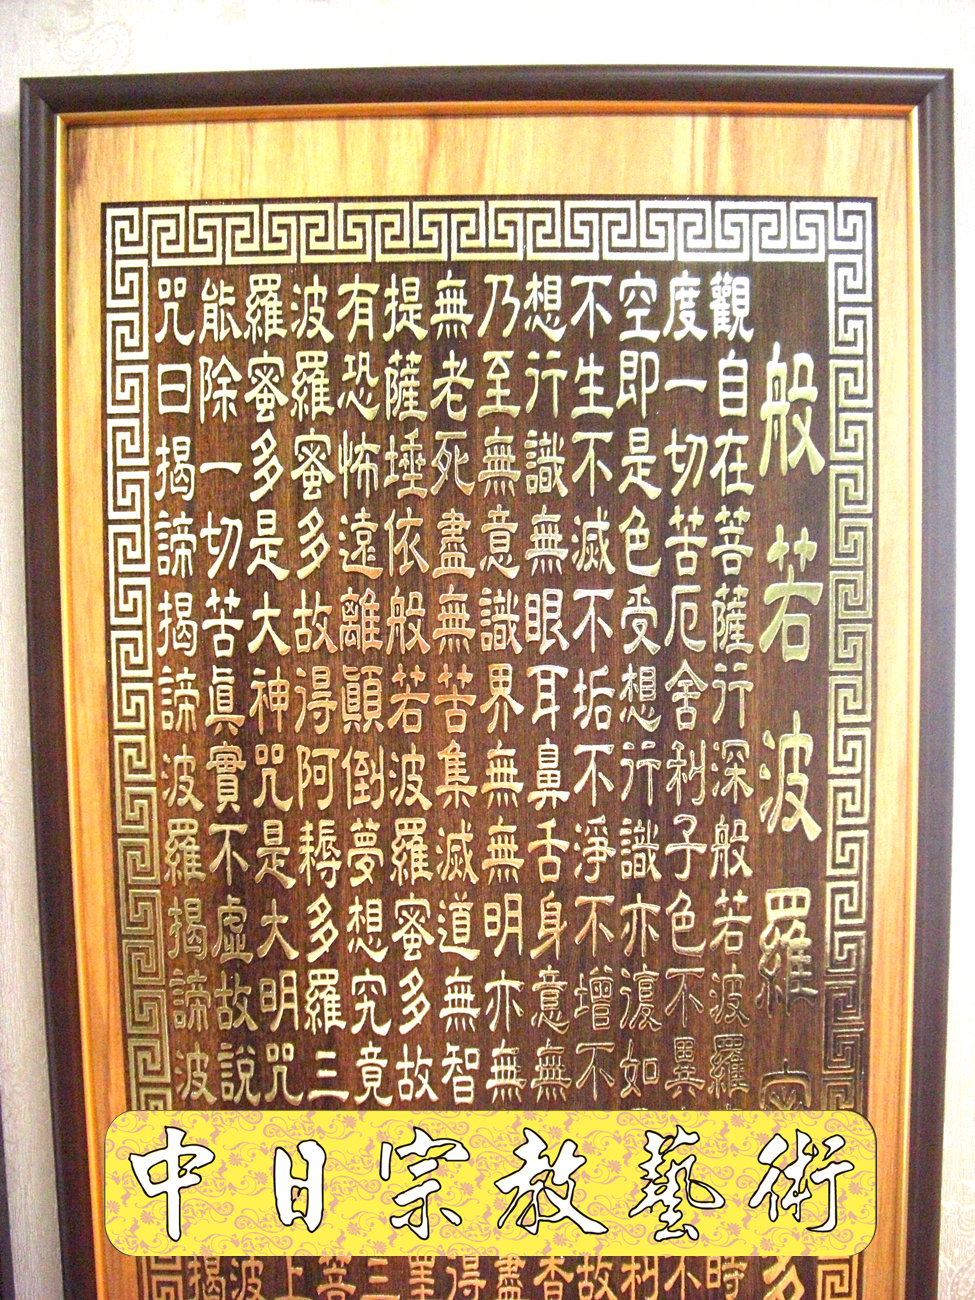 般若波羅
觀自在菩薩行深般若波羅時
度一切苦厄舍利子色不異不
空即是色受想行識亦復如利
不生不滅不垢不淨不增不故
想行識無眼耳鼻舌身意無香
乃至無意識界無無明亦無盡
無老死盡無苦集滅道無智得
提薩埵依般若波羅蜜多故罣
有恐怖遠離顛倒夢想究竟三
波羅蜜多故得阿耨多羅三菩
羅蜜多是大神咒是大明咒上
能除一切苦眞實不虛故說波
咒曰揭諦揭諦波羅揭諦波揭
中日宗教藝術